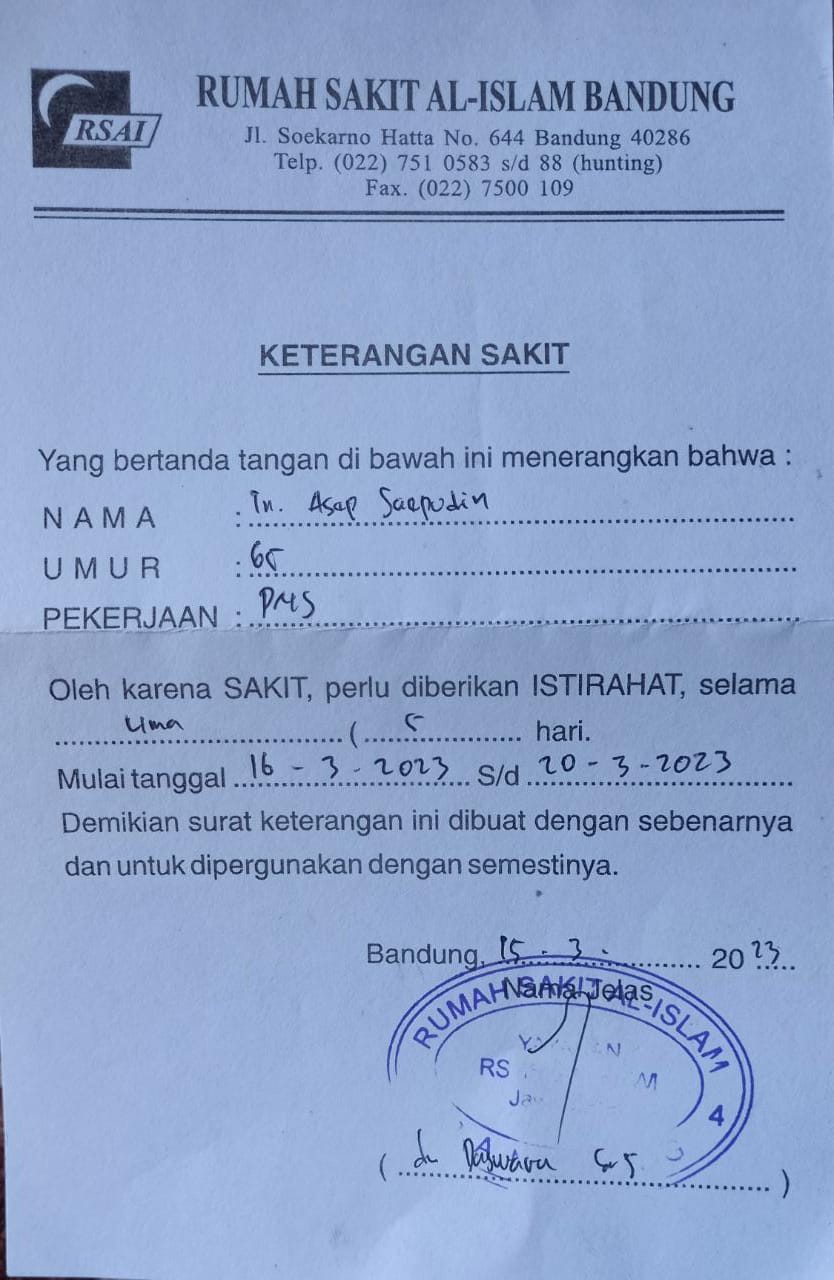 RSAI
RUMAH SAKIT AL-ISLAM BANDUNG
Jl. Soekarno Hatta No. 644 Bandung 40286
Telp. (022) 751 0583 s/d 88 (hunting)
Fax. (022) 7500 109
KETERANGAN SAKIT
Yang bertanda tangan di bawah ini menerangkan bahwa :
NAMA : Tn. Asep Saepudin
UMUR : 65
PEKERJAAN : PNS
Oleh karena SAKIT, perlu diberikan ISTIRAHAT, selama
Lima ( 5 hari.
Mulai tanggal 16 - 3 - 2023 S/d 20 - 3 - 2023
Demikian surat keterangan ini dibuat dengan sebenarnya
dan untuk dipergunakan dengan semestinya.
Bandung, 15 - 3 - 2023
Nama Jelas
RUMAH SAKIT AL-ISLAM
RS
4
( dr )